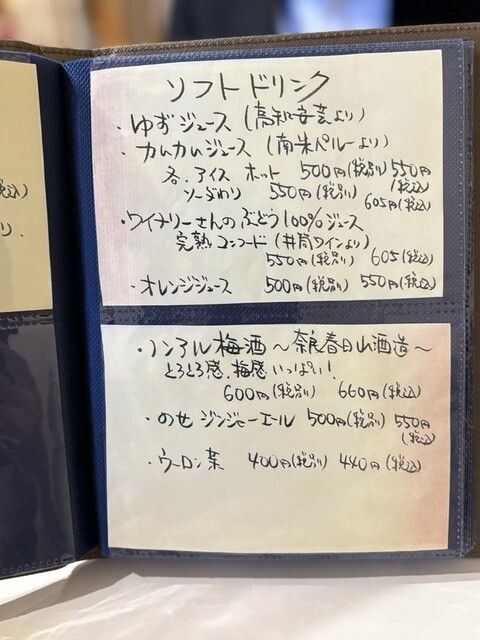 ソフトドリンク
・ゆずジュース (高知安芸より)
・カムカムジュース (南米ペルーより)
各、アイス ホット 500円(税別) 550円(税込)
ソーダわり 550円(税別) 605円(税込)
・ワイナリーさんのぶどう100%ジュース
完熟コンコード (井筒ワインより)
550円(税別) 605(税込)
・オレンジジュース 500円(税別) 550円(税込)
・ノンアル梅酒 〜奈良春日山酒造〜
とろとろ感、梅感いっぱい!
600円(税別) 660円(税込)
・のせ ジンジャーエール 500円(税別) 550円(税込)
・ウーロン茶 400円(税別) 440円(税込)